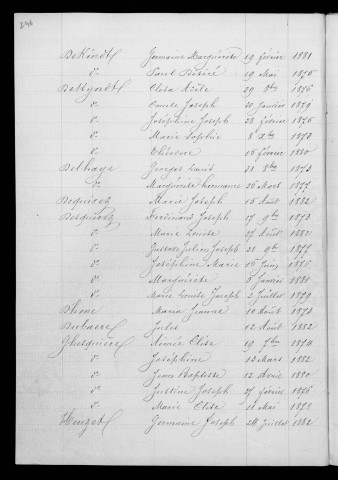 246
Germaine Marguerite 19 février 1881
dº Paul Désiré 19 Mai 1876
Elisa Zoïle 29 8bre 1876
dº Camile Joseph 20 Janvier 1879
dº Joséphine Joseph 28 février 1876
dº Marie Sophie 8 Xbre 1873
dº 15 février 1880
Delhaye Georges Louis 21 8bre 1873
dº Marguerite Germaine 26 Mars 1877
Marie Joseph 15 Août 1882
Ferdinand Joseph 17 9bre 1873
dº Marie Louise 27 Août 1882
dº Gustave Julien Joseph 21 9bre 1877
dº Joséphine Marie 15 Juin 1875
dº Marguerite 5 Janvier 1881
dº Marie Louise Joseph 2 Juillet 1879
Dhenne Maria Jeanne 10 Août 1873
Jules 12 Août 1882
Ghesquiere Aimée Elise 19 7bre 1874
dº Joséphine 13 Mars 1882
dº Jean Baptiste 12 Avril 1880
dº Justine Joseph 27 février 1876
dº Marie Elise 11 Mai 1878
Germaine Joseph 24 Juillet 1882